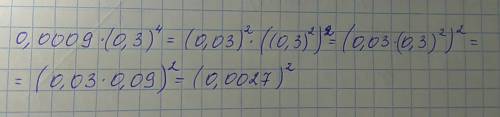 0,0009·(0,3)⁴ = (0,03)²·((0,3)²)² = (0,03·(0,3)²)² =
= (0,03·0,09)² = (0,0027)²